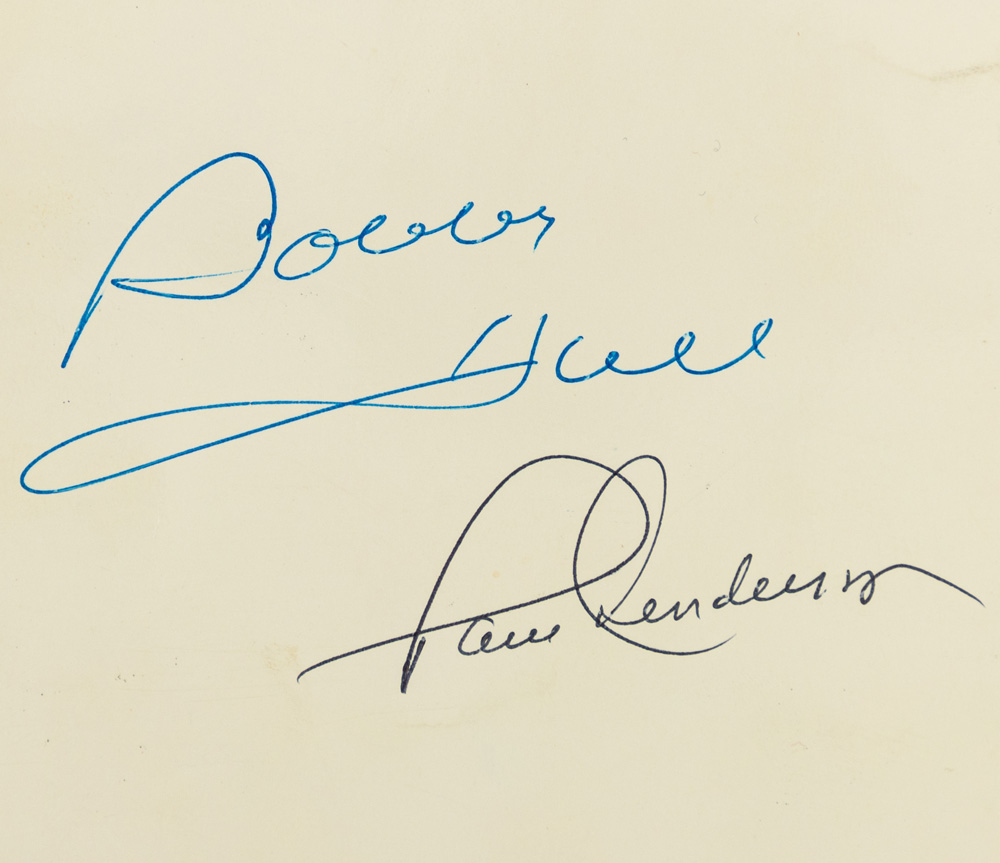 Bobby
Hull
Paul Henderson